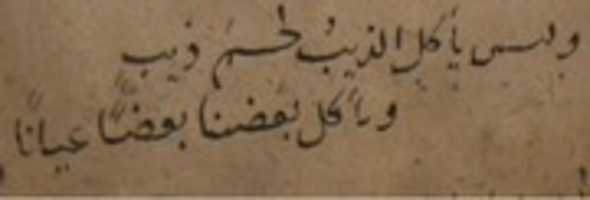 وليس يأكل الذيب لحم ذيب
ويأكل بعضنا بعضًا عيانًا